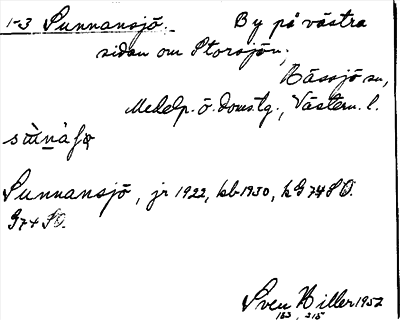 1-3 Sunnansjö. By på västra
sidan om Storsjön,
Hässjö sn,
Medelp. ö. domstg., Västern. l.
Sunnansjö, jr 1922, kb 1950, kG 74 SO.
G74 SO.
Sven Hiller 1957